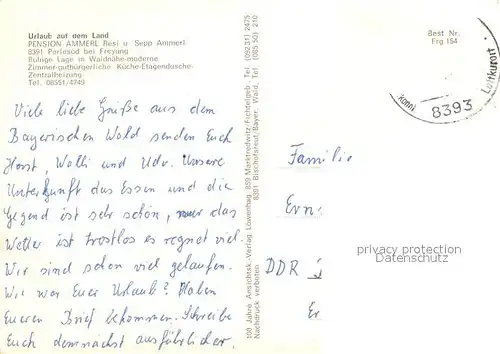 Urlaub auf dem Land
PENSION AMMERL Resi u Sepp Ammerl
8391 Perlesöd bei Freyung
Ruhige Lage in Waldnähe-moderne
Zimmer-gutbürgerliche Küche-Etagendusche-
Zentralheizung
Tel. 08551/4749
Viele liebe Grüße aus dem
Bayerischen Wald senden Euch
Horst, Walli und Udo. Unsere
Unterkunft das Essen und die
Gegend ist sehr schön, nur das
Wetter ist trostlos es regnet viel.
Wir sind schon viel gelaufen.
Wie war Euer Urlaub? Haben
Eueren Brief bekommen. Schreibe
Euch demnächst ausführlicher.
100 Jahre Ansichtsk.-Verlag Löwenhag, 859 Marktredwitz/Fichtelgeb. Tel (09231) 2475
Nachdruck verboten 8391 Bischofsreut/Bayer. Wald, Tel (08550) 210
Best Nr.
Frg 154
8393
Luftkurort
Familie
Ern
DDR
Er
privacy protection
Datenschutz